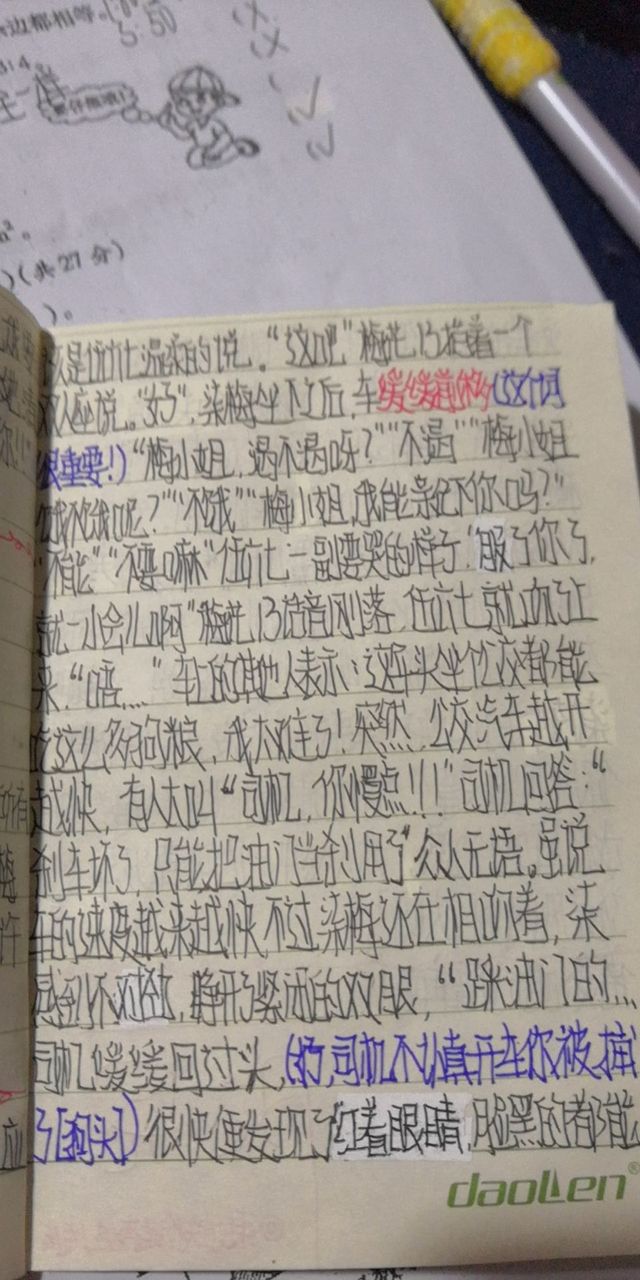 边都相等。
5:50
3:4。
(共27分)
)。
是伍六七温柔的说。“这吧”梅花13指着一个
双人座说。“好”，柒梅坐下之后，车缓缓前(这个词
很重要！)“梅小姐，渴不渴呀？”“不渴”“梅小姐
饿不饿呢？”“不饿”“梅小姐，我能亲亲你吗？”
“不能”“不要嘛”伍六七一副要哭的样子，“服了你了，
就一小会儿啊”梅花13话音刚落，伍六七就吻了上
来。“唔....”车上的其他人表示：这年头坐个公交都能
吃这么多狗粮，我太难了！突然，公交汽车越开
越快，有人大叫“司机，你慢点!!!”司机回答：“
刹车坏了，只能把油门当刹用了”众人无语。虽说
车的速度越来越快，不过柒梅还在相吻着，柒
感到不对劲，睁开了紧闭的双眼，“踩油门的...
司机缓缓回过头，(好，司机不认真开车你被捕
了[狗头]) 很快便发现了红着眼睛，脸黑的都能
daolen®